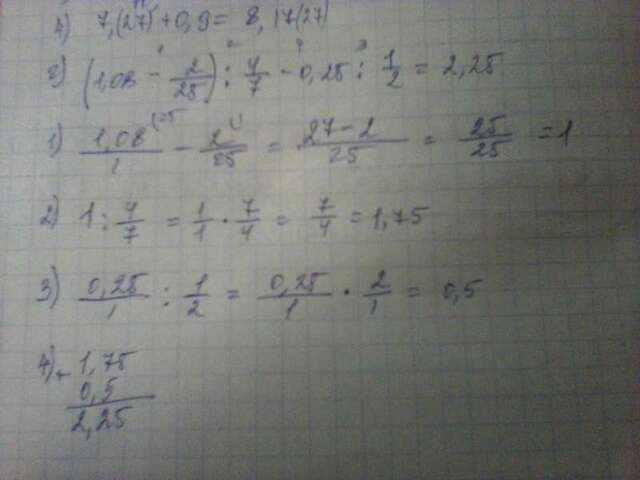 4) 7,(27) + 0,9 = 8,17(27)
2) (1,08 - 2/25) : 4/7 - 0,25 : 1/2 = 2,25
1) 1,08/1 - 2/25 = 27-2/25 = 25/25 = 1
2) 1 : 4/7 = 1/1 · 7/4 = 7/4 = 1,75
3) 0,25/1 : 1/2 = 0,25/1 · 2/1 = 0,5
4) + 1,75
0,5
2,25